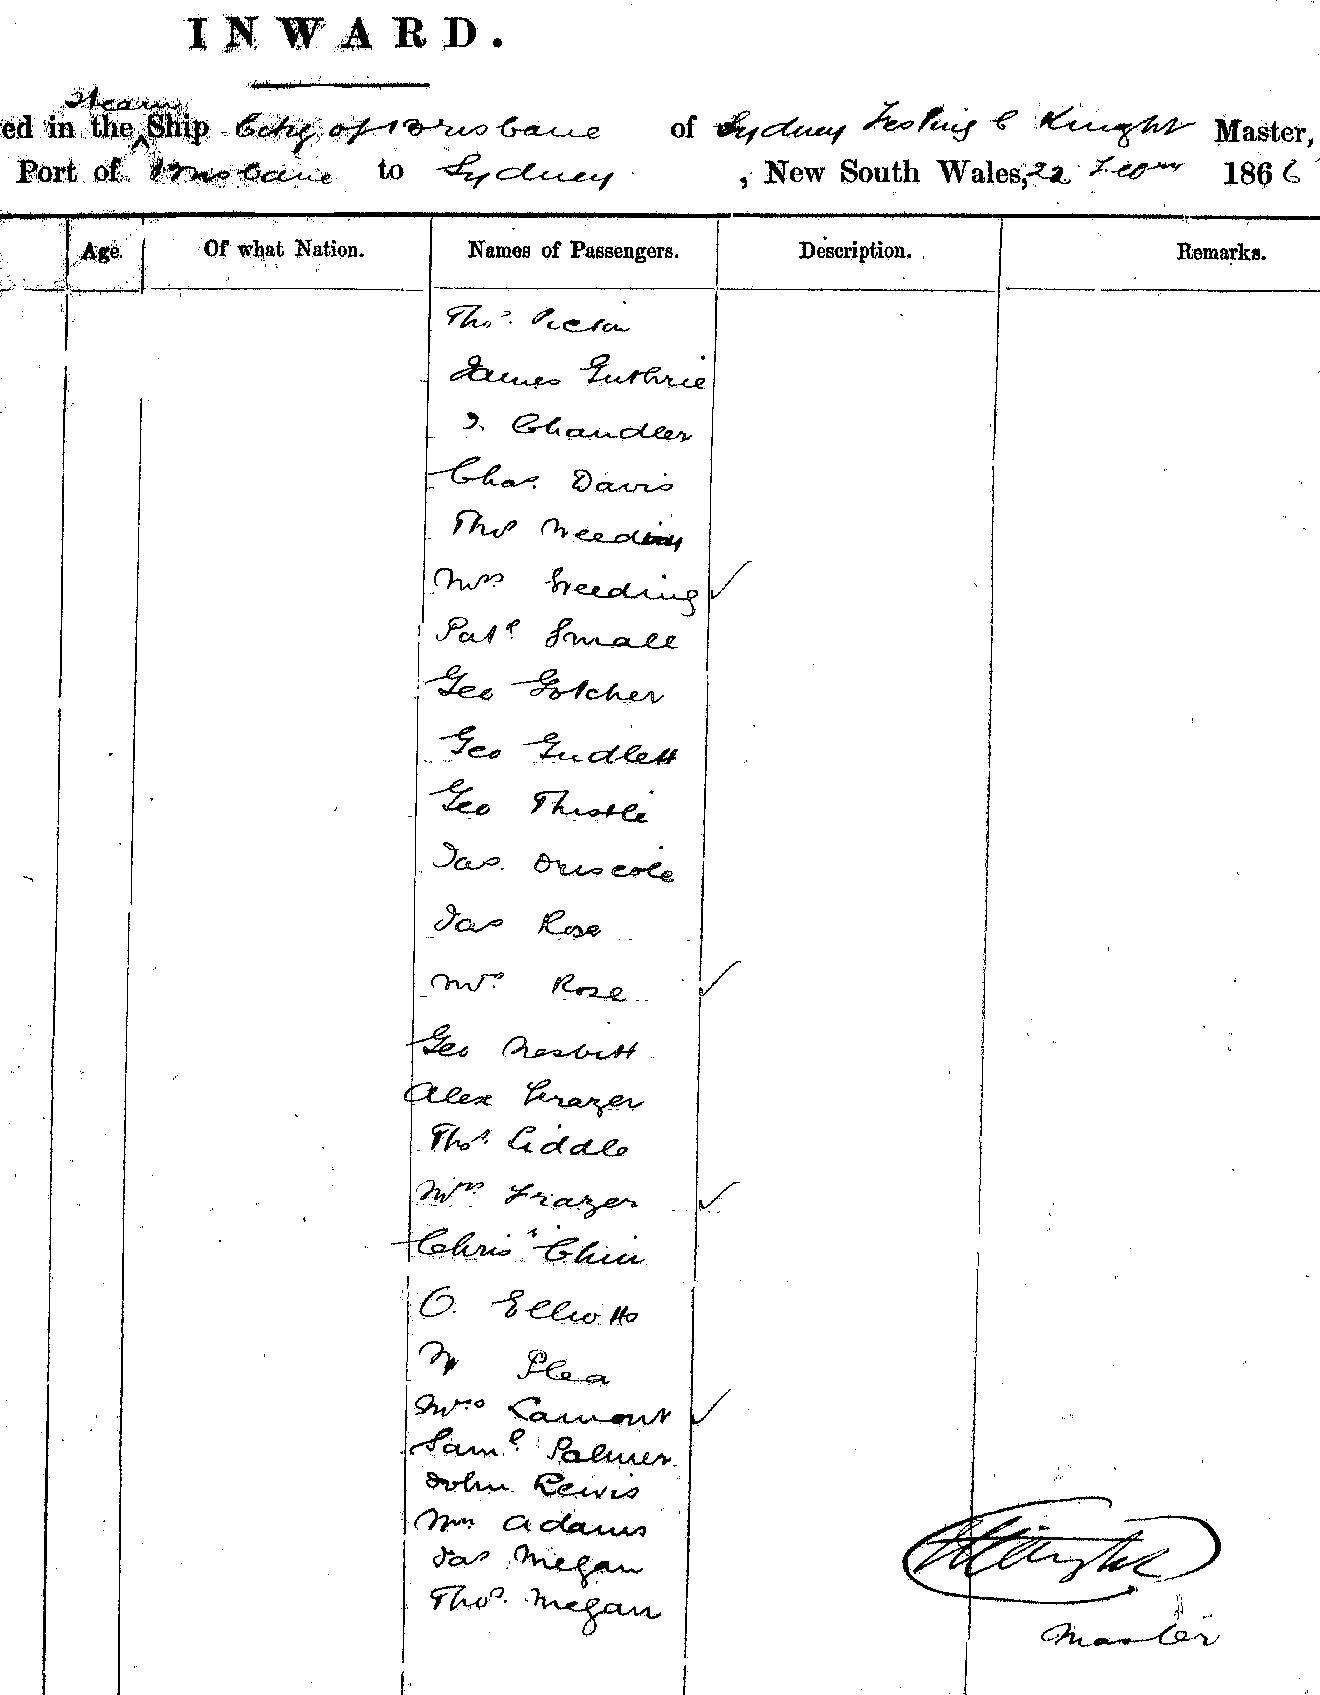 INWARD.
Steam
ed in the ^ Ship City of Brisbane of Sydney Knight Master,
Port of Brisbane to Sydney , New South Wales, 22 1866
Age. Of what Nation. Names of Passengers. Description. Remarks.
Thos. Picton
James Guthrie
J. Chandler
Chas. Davis
Thos
Mrs Weeding ✓
Patk Small
Geo Gotcher
Geo Gudlett
Geo Thistle
Jas. Driscole
Jas Rose
Mrs Rose ✓
Geo Nesbitt
Alex Frazer
Thos. Liddle
Mrs Frazer ✓
Chris Chin
O. Elliotts
Plea
Mrs Lamont ✓
Saml Palmer
John Lewis
Adams
Jas Megan
Thos. Megan
Knight
Master